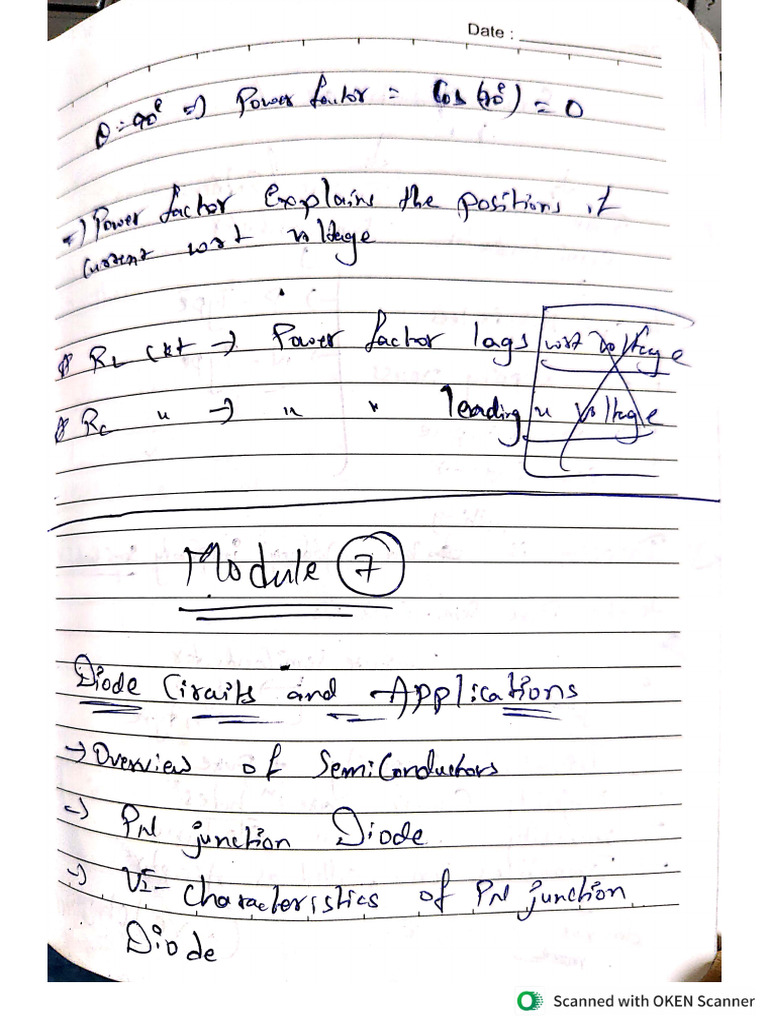 Date :
θ = 90° ⇒ Power factor = Cos (90°) = 0
⇒) Power factor Explains the positions of
current wrt voltage
RL Ckt → Power factor lags wrt voltage
RC " → " " leading " voltage
Module 7
Diode Circuits and Applications
→ Overview of SemiConductors
→ PN junction Diode
→ VI- Characteristics of PN junction
Diode
Scanned with OKEN Scanner